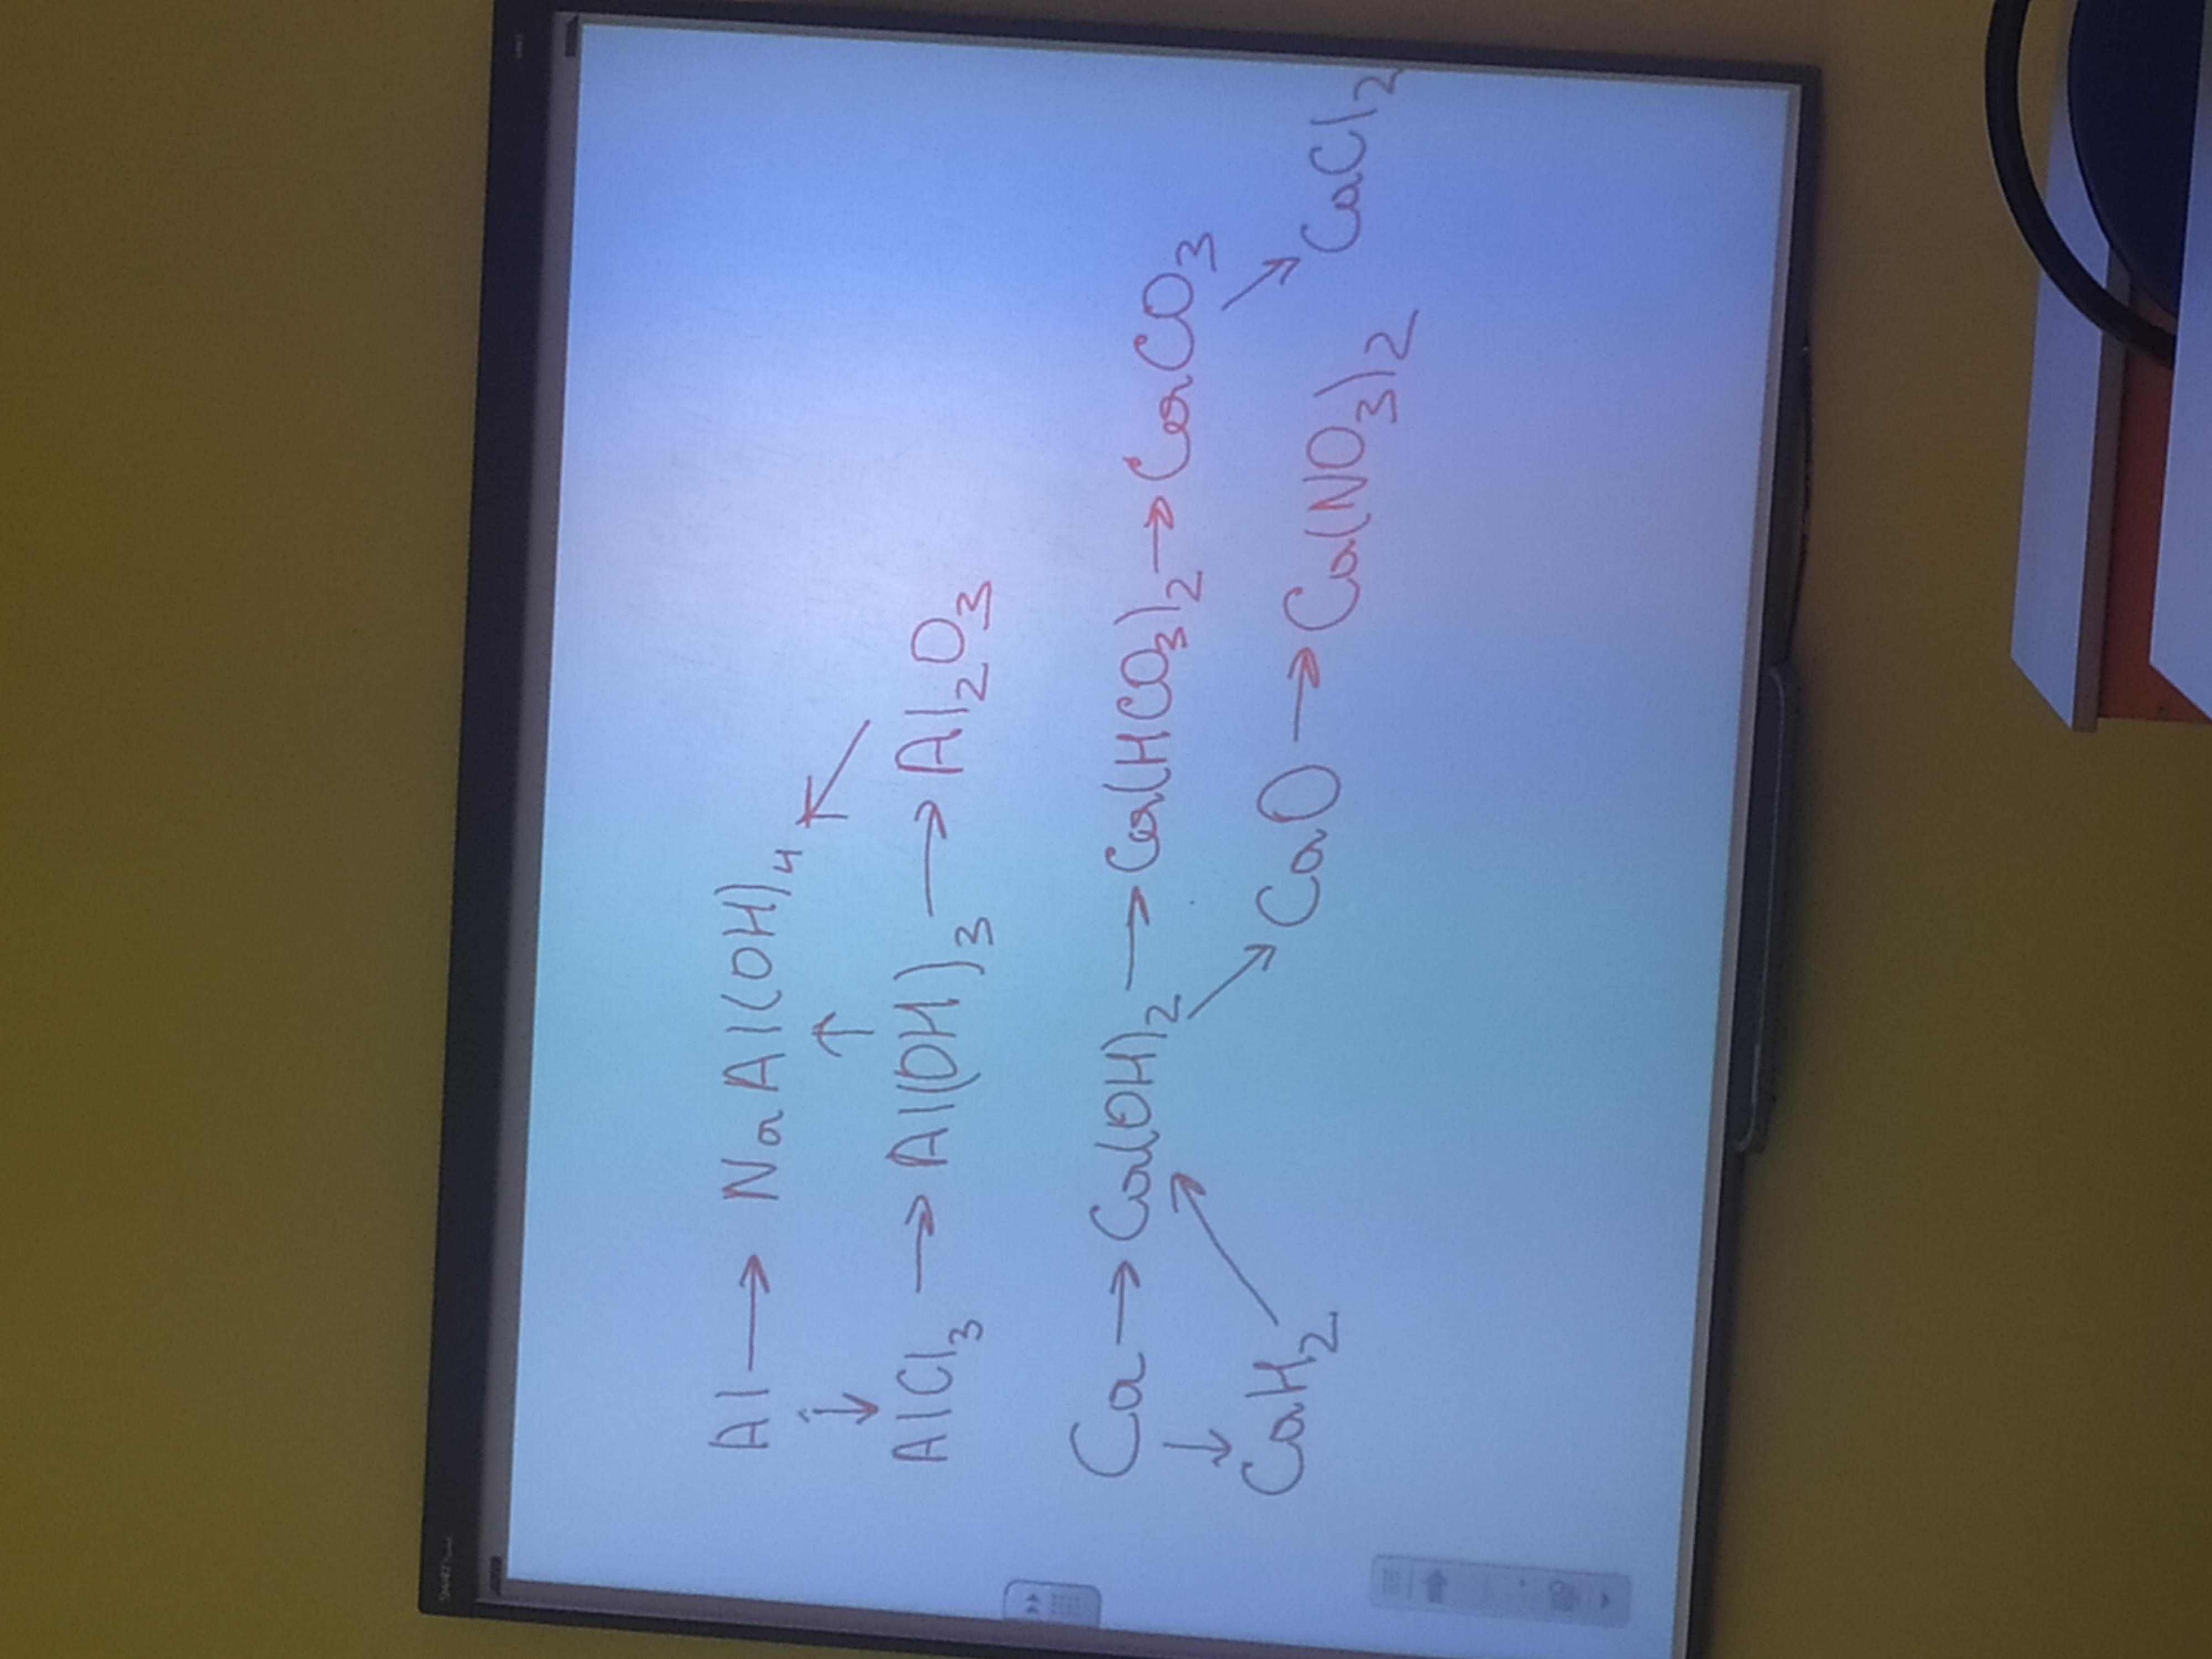 Al → NaAl(OH)4
↓ ↑ ↖
AlCl3 → Al(OH)3 → Al2O3
Ca → Ca(OH)2 → Ca(HCO3)2 → CaCO3
↓ ↗ ↘ ↘
CaH2 CaO → Ca(NO3)2 CaCl2